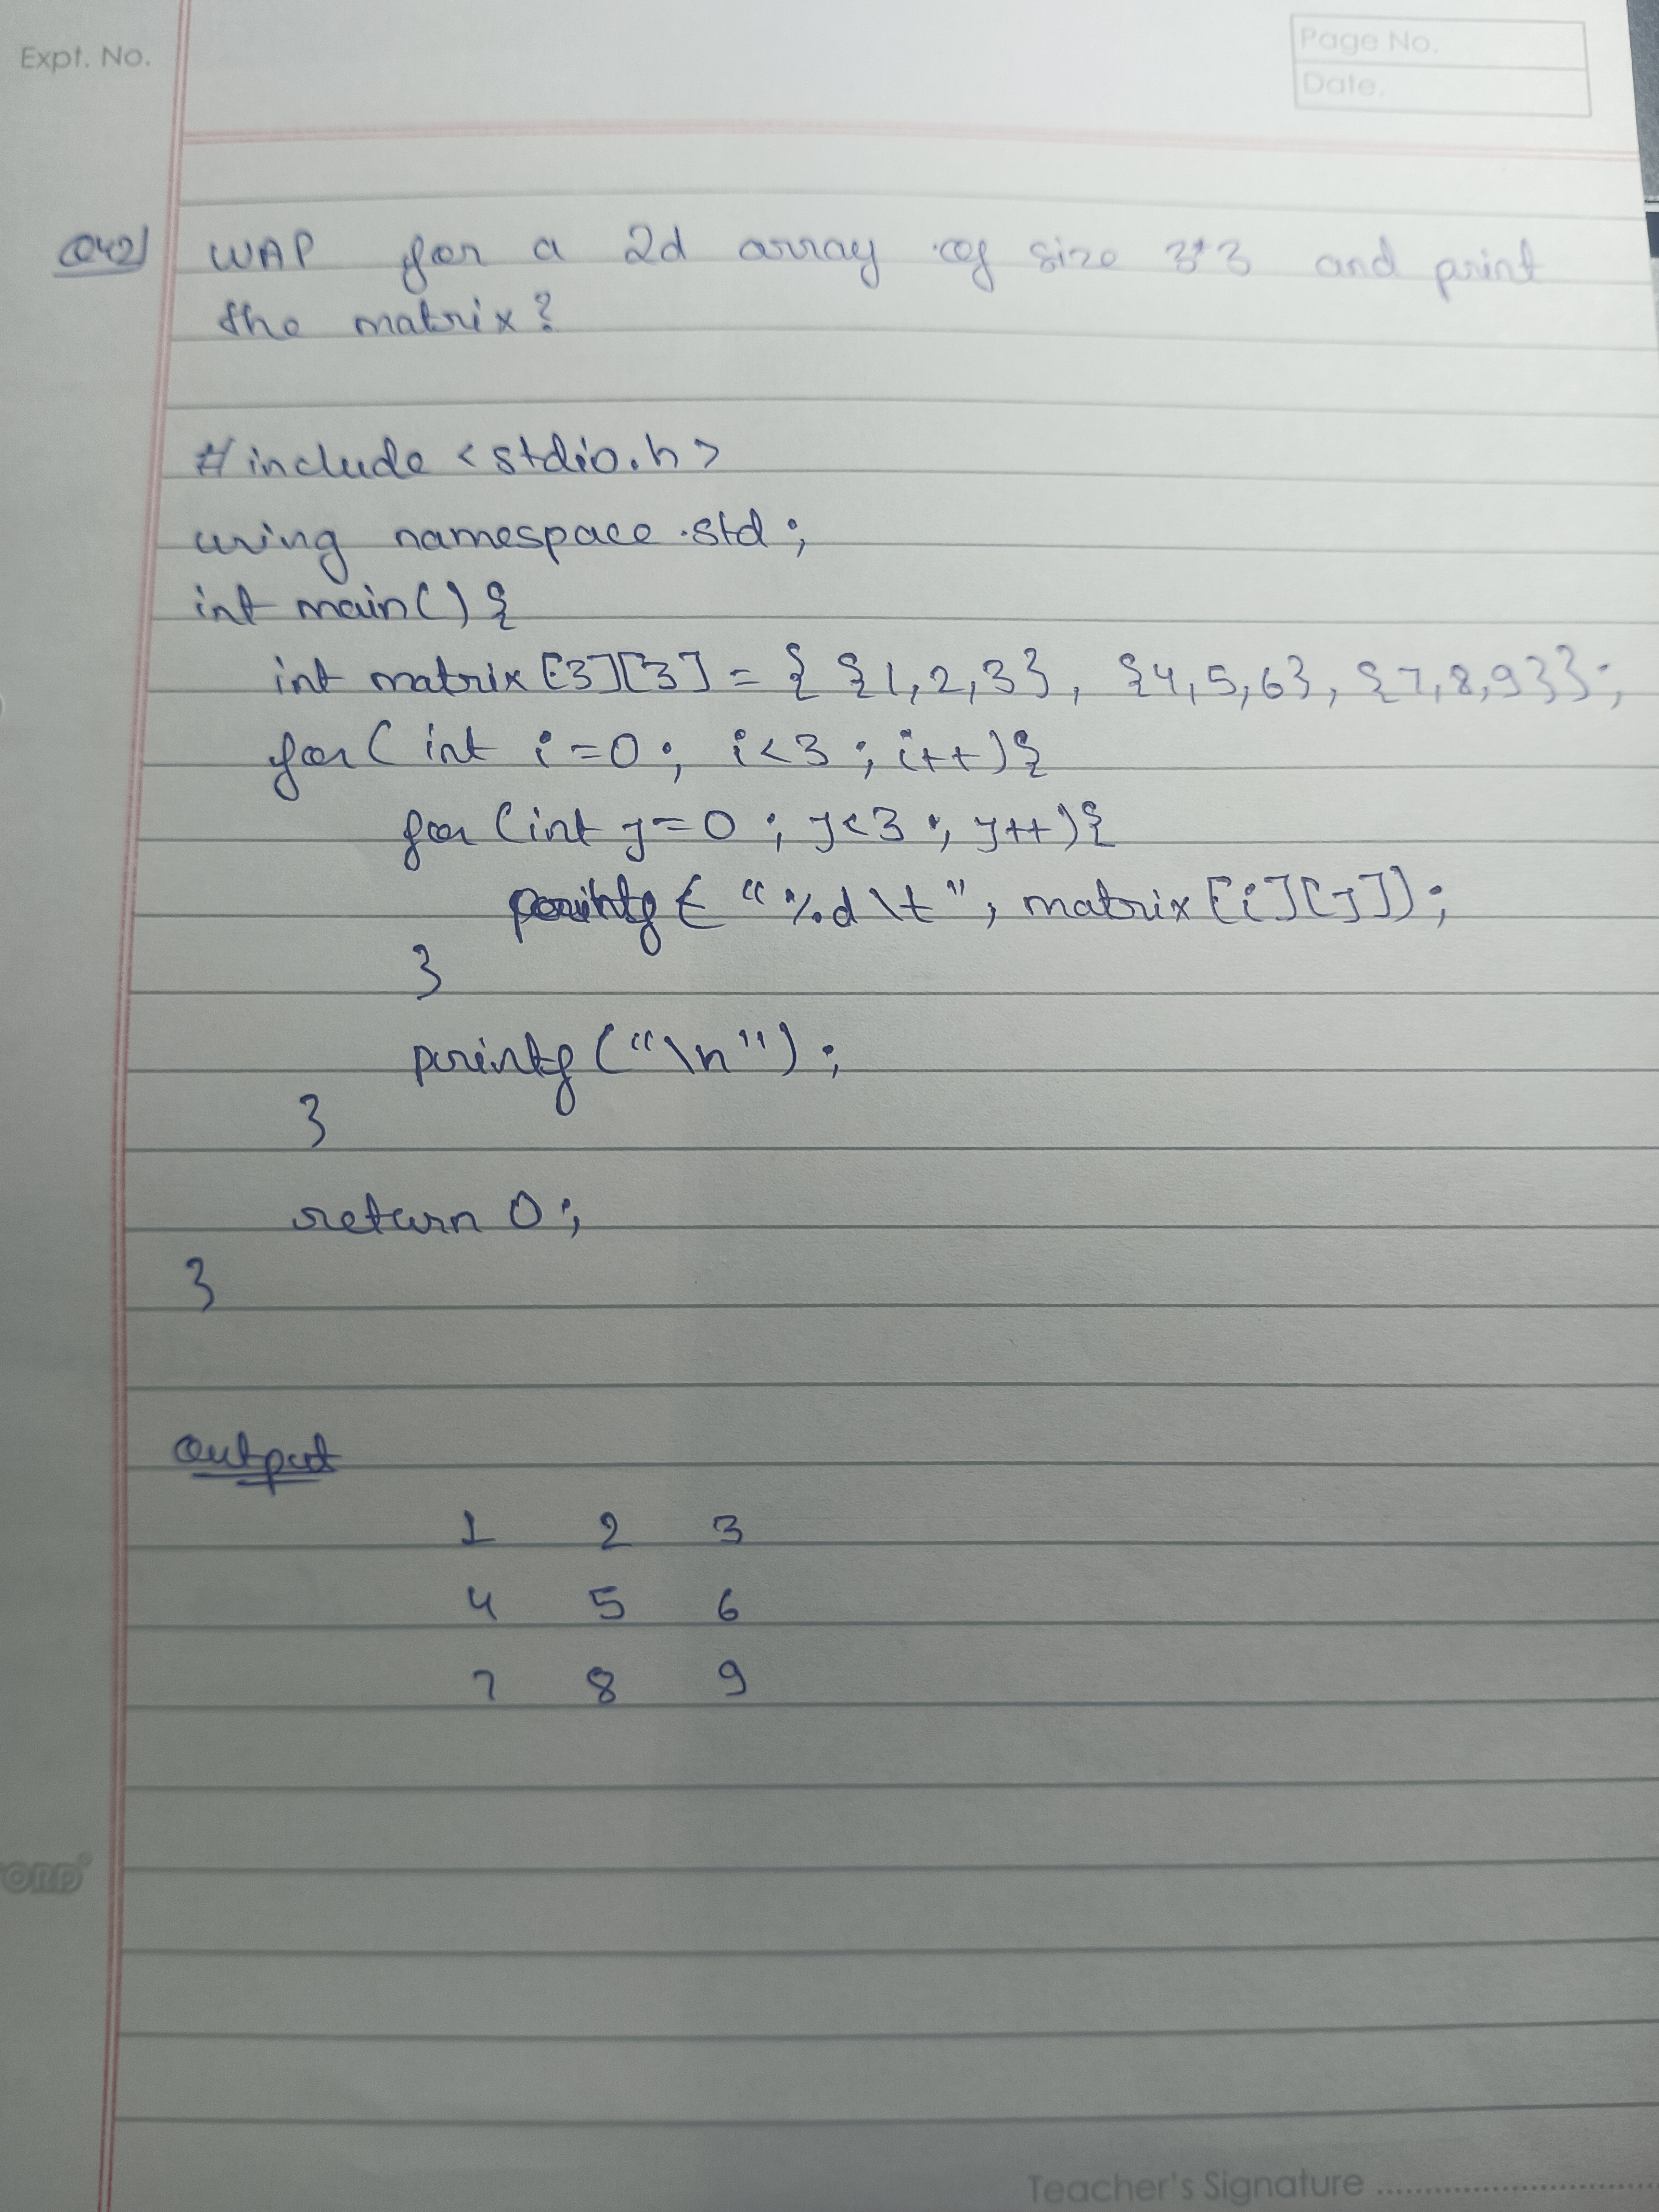 Expt. No.
Page No.
Date.
Q42) WAP for a 2d array of size 3*3 and print
the matrix?
#include <stdio.h>
using namespace std;
int main() {
int matrix [3][3] = { {1,2,3}, {4,5,6}, {7,8,9}};
for ( int i=0; i<3; i++){
for (int j=0; j<3; j++){
printf ( "%d\t", matrix [i][j]);
}
printf ("\n");
}
return 0;
}
Output
1 2 3
4 5 6
7 8 9
Teacher's Signature